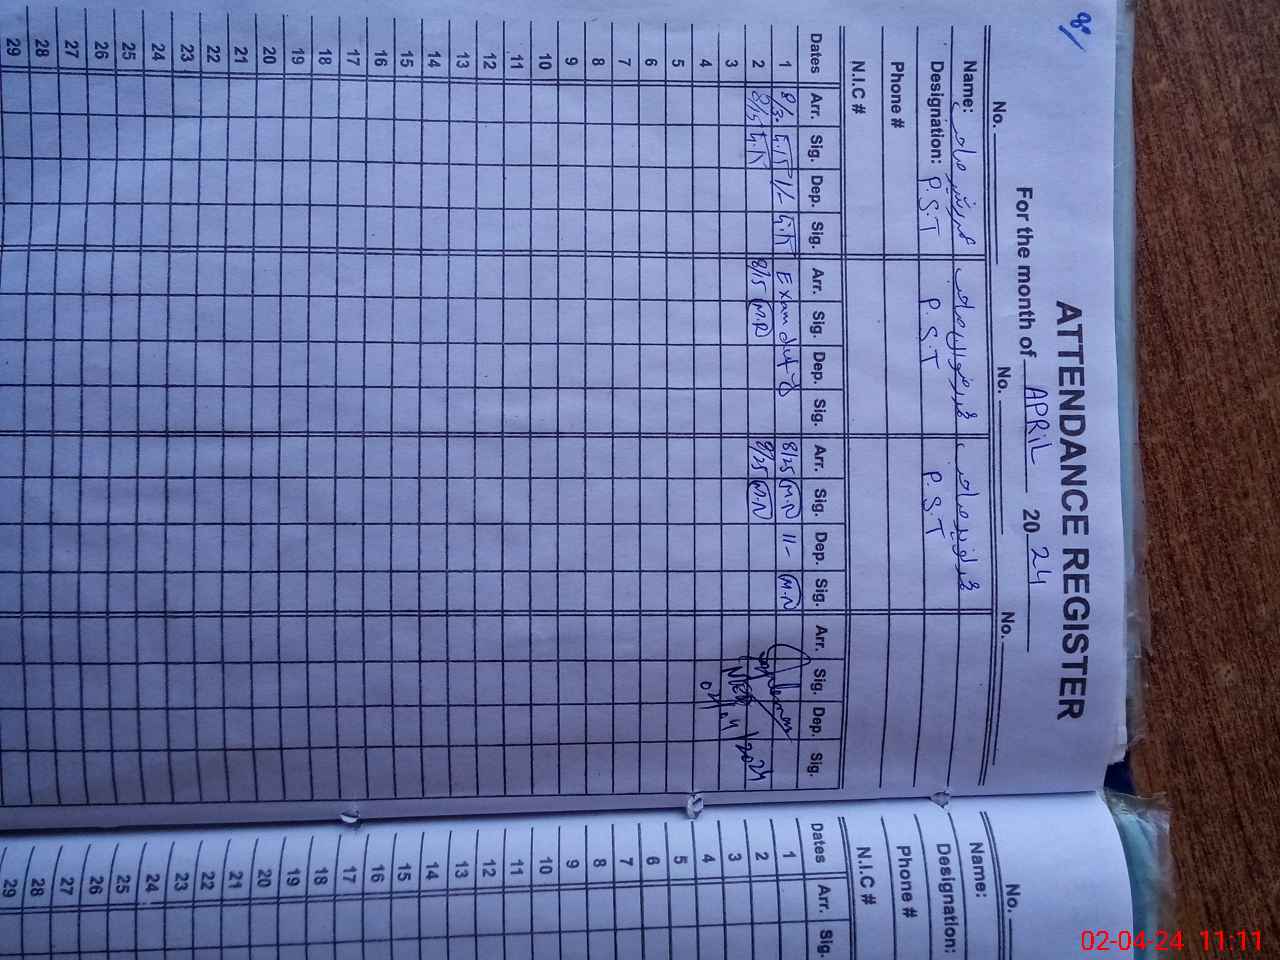 8/
ATTENDANCE REGISTER
For the month of APRIL 2024
No. No. No.
Name:
Designation: P.S.T P.S.T P.S.T
Phone #
N.I.C #
Dates Arr. Sig. Dep. Sig. Arr. Sig. Dep. Sig. Arr. Sig. Dep. Sig. Arr. Sig. Dep. Sig.
1 Exam duty 8/25 M.N 11- M.N
2 8/15 M.R 8/25 M.N
3
4
5
6
7
8
9
10
11
12
13
14
15
16
17
18
19
20
21
22
23
24
25
26
27
28
29
No.
Name:
Designation:
Phone #
N.I.C #
Dates Arr. Sig.
1
2
3
4
5
6
7
8
9
10
11
12
13
14
15
16
17
18
19
20
21
22
23
24
25
26
27
28
29
02-04-24 11:11